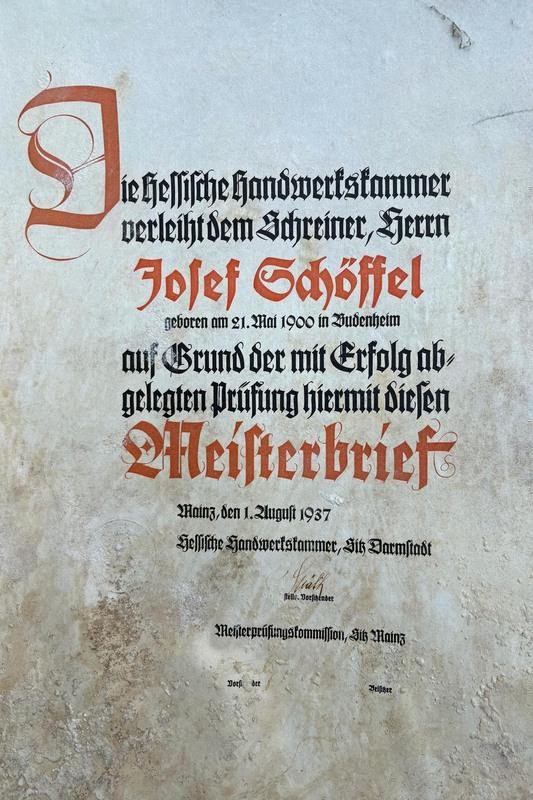 Die Hessische Handwerkskammer
verleiht dem Schreiner, Herrn
Josef Schöffel
geboren am 21. Mai 1900 in Budenheim
auf Grund der mit Erfolg ab-
gelegten Prüfung hiermit diesen
Meisterbrief
Mainz, den 1. August 1937
Hessische Handwerkskammer, Sitz Darmstadt
stellv. Vorsitzender
Meisterprüfungskommission, Sitz Mainz
Beisitzer